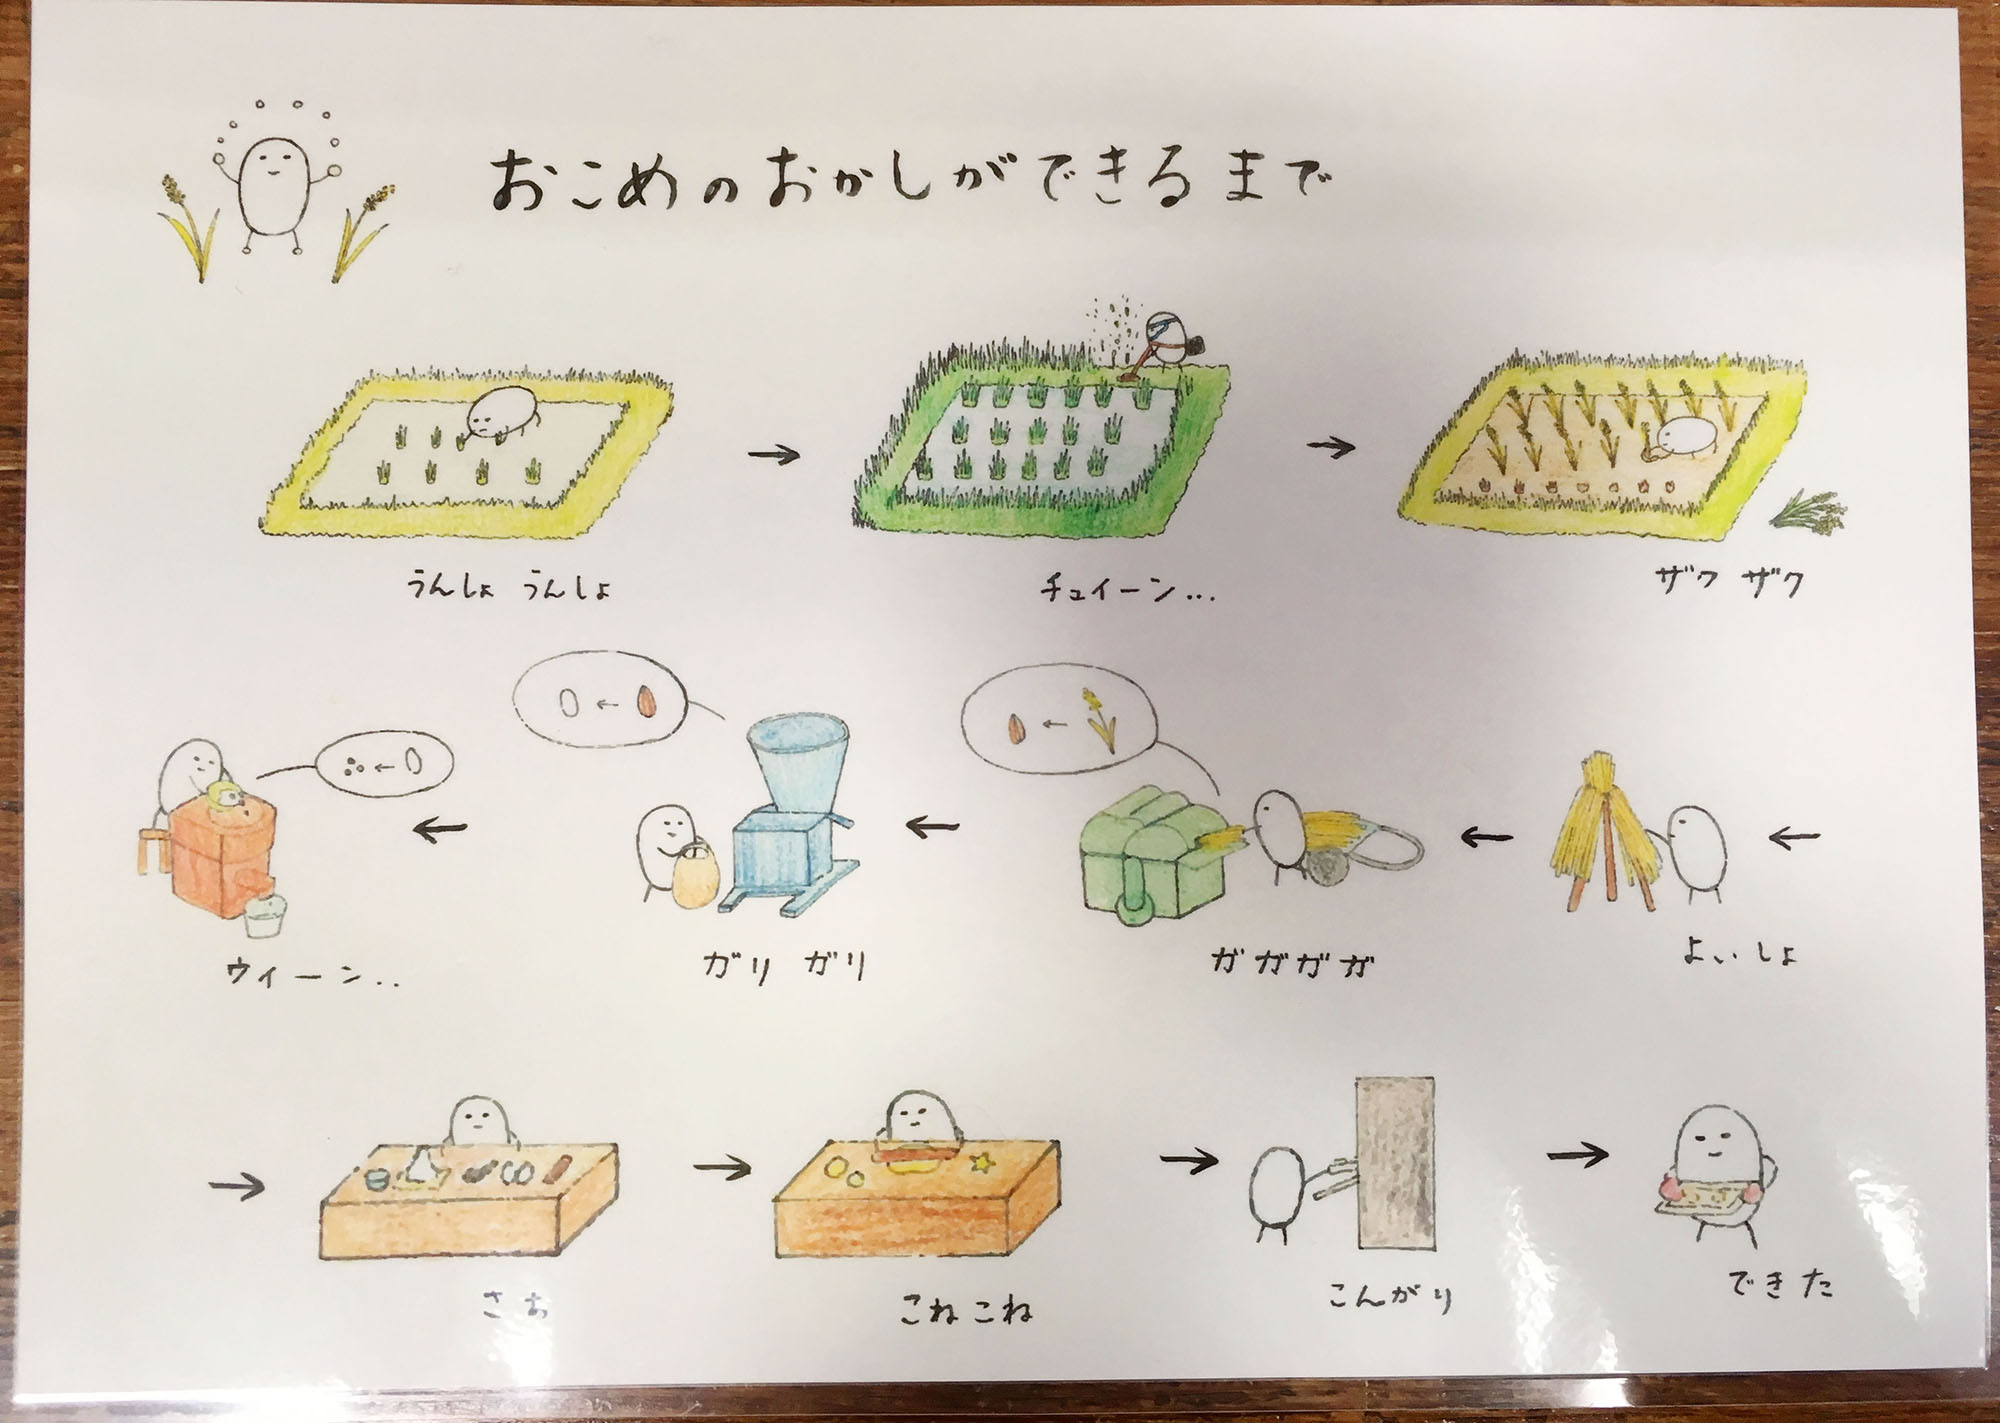 おこめのおかしができるまで
うんしょ うんしょ
チュイーン...
ザク ザク
よいしょ
ガガガガ
ガリ ガリ
ウィーン..
さぁ
こねこね
こんがり
できた